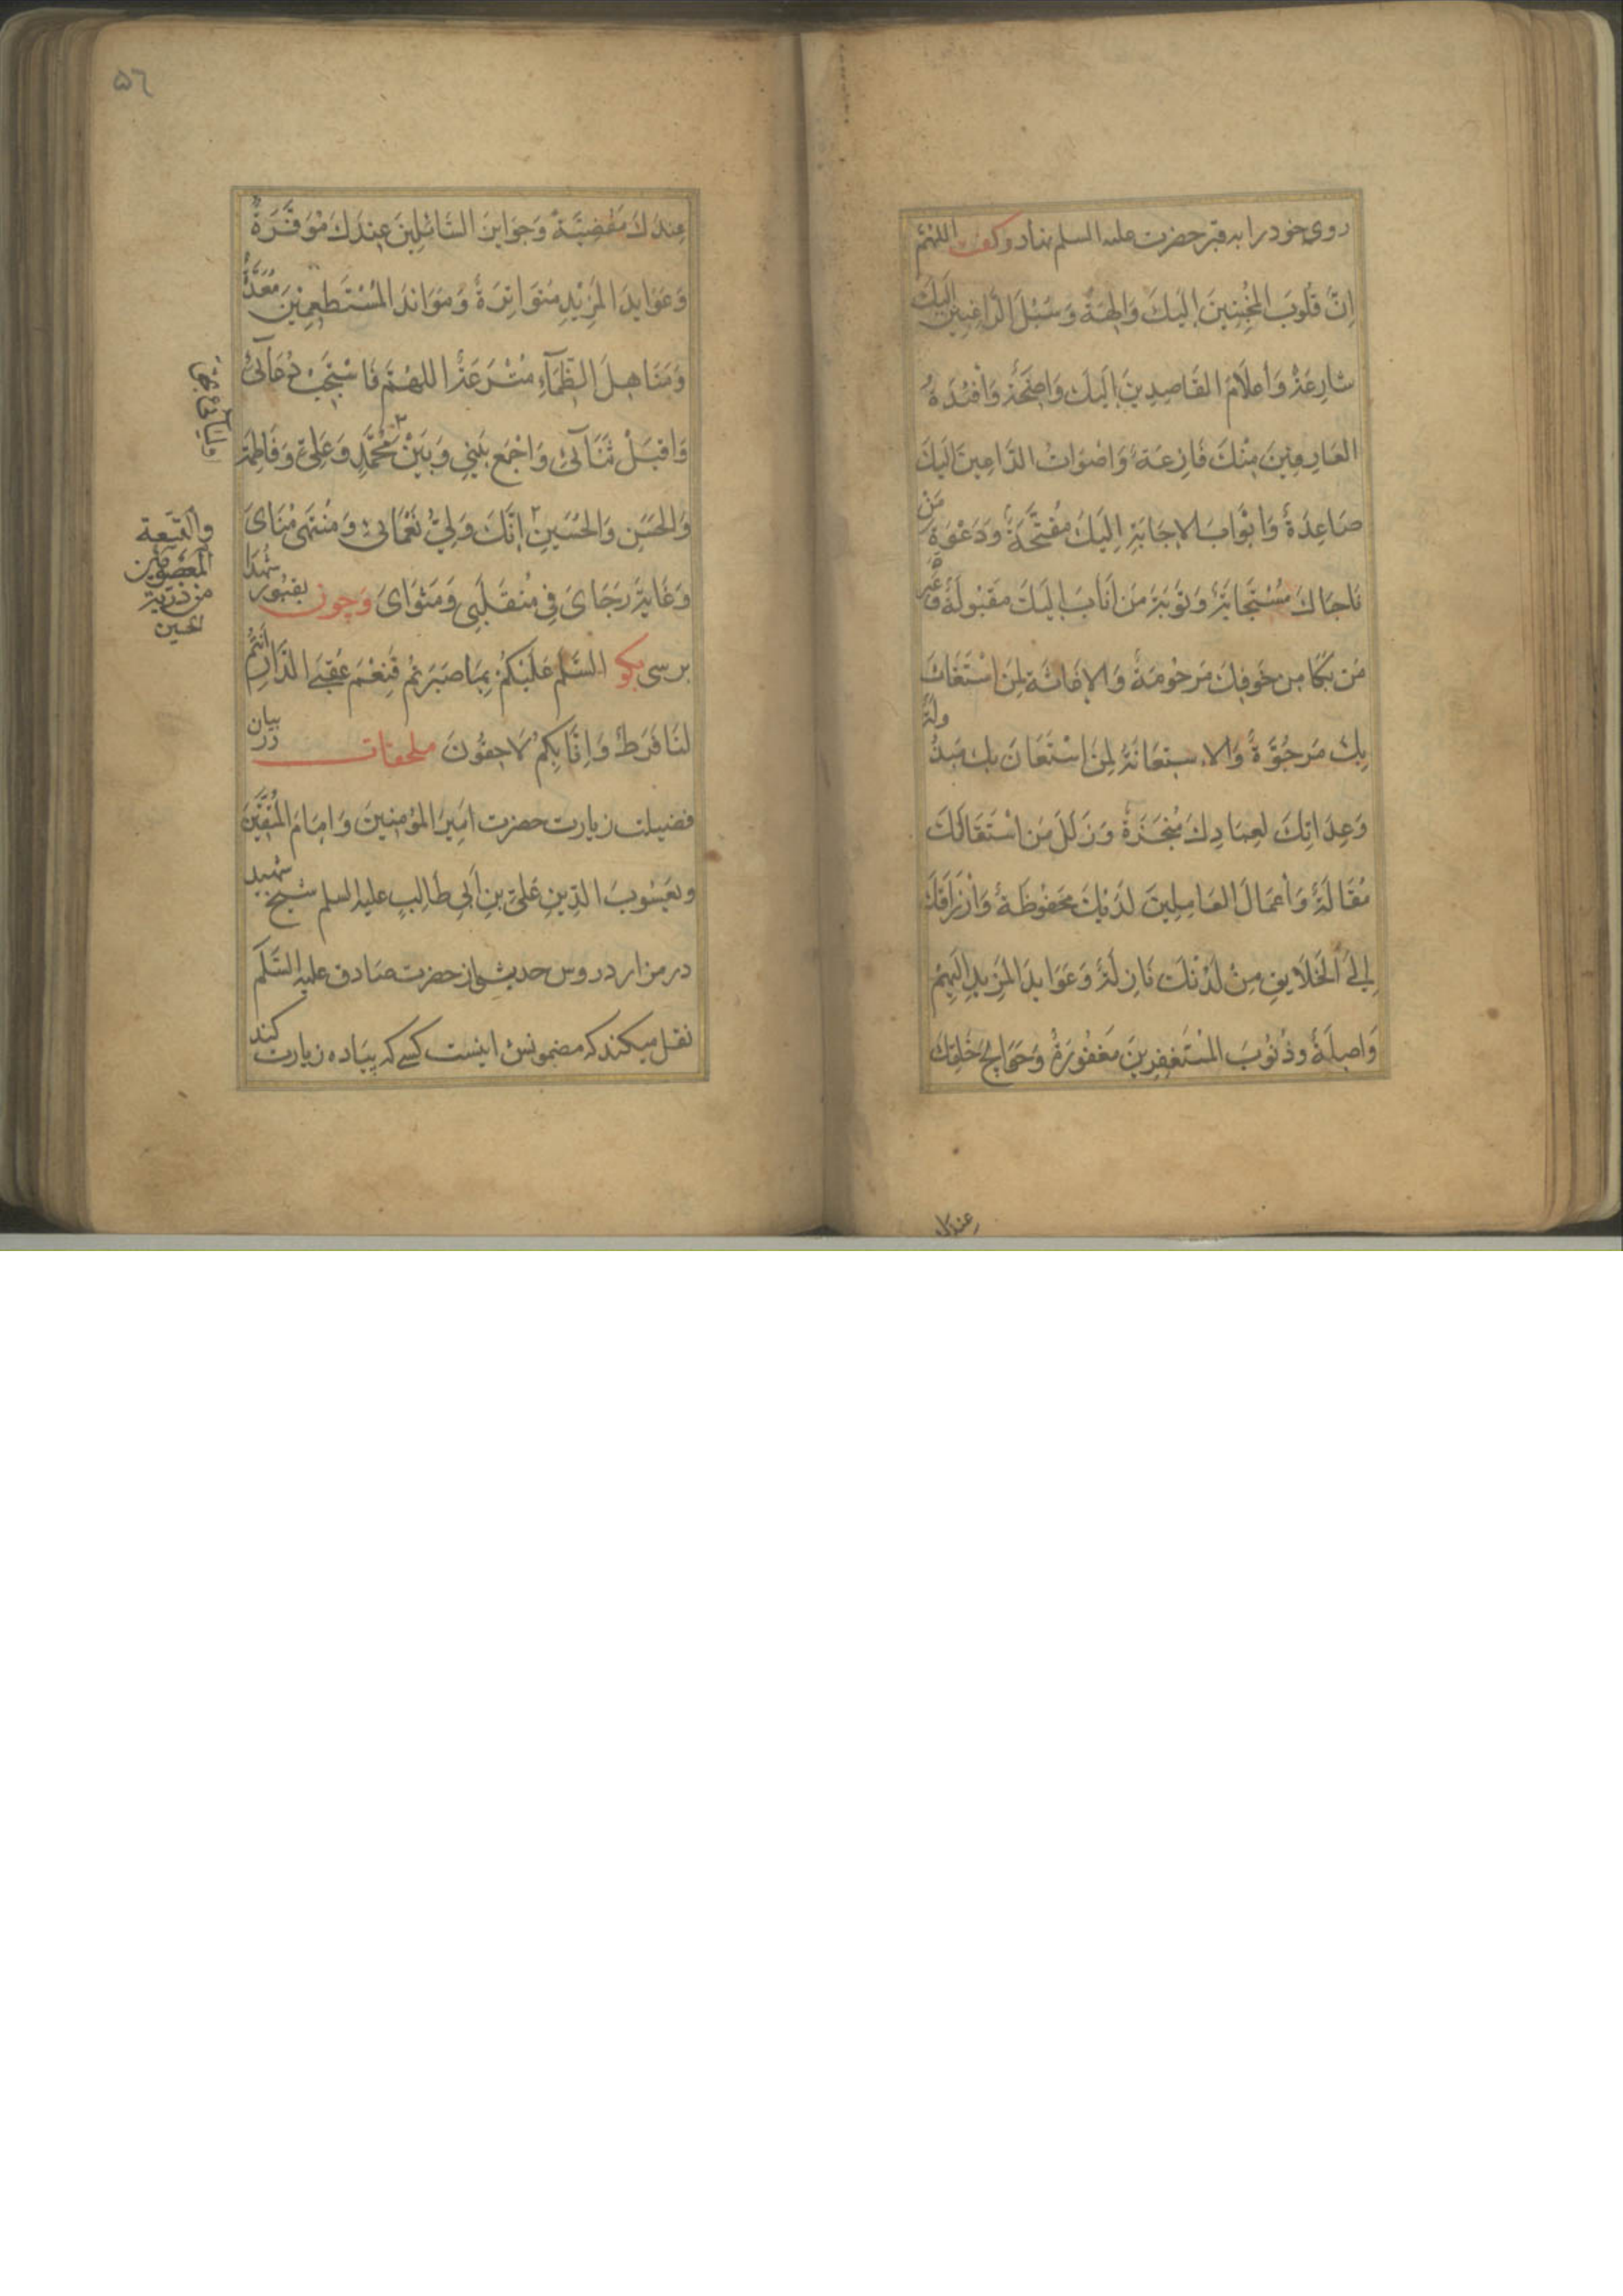 روی خود را بر قبر حضرت علیه السلم نهاد و گفت اللهُمَّ
اِنَّ قُلُوبَ المُخْبِتِينَ اِلَيكَ وَالِهَةٌ وَسُبُلَ الرَّاغِبِينَ اِلَيكَ
شارِعَةٌ وَاَعلَامَ القَاصِدِينَ اِلَيكَ وَاضِحَةٌ وَاَفْئِدَةُ
العَارِفِينَ مِنْكَ فَازِعَةٌ وَاَصْوَاتُ الدَّاعِينَ اِلَيكَ
صَاعِدَةٌ وَاَبْوَابَ الاِجَابَةِ اِلَيكَ مُفَتَّحَةٌ وَدَعْوَةَ مَنْ
نَاجَاكَ مُسْتَجَابَةٌ وَتَوْبَةَ مَن اَنَابَ اِلَيكَ مَقْبُولَةٌ وَعَبْرَةَ
مَن بَكَا مِن خَوفِكَ مَرحُومَةٌ وَالاِغَاثَةَ لِمَنِ اسْتَغَاثَ
بِكَ مَرجُوَّةٌ وَالاِستِعَانَةَ لِمَنِ اسْتَعَانَ بِكَ مَبذُولَةٌ
وَعِدَاتِكَ لِعِبَادِكَ مُنْجَزَةٌ وَزَلَلَ مَنِ اسْتَقَالَكَ
مُقَالَةٌ وَاَعْمَالَ العَامِلِينَ لَدَيْكَ مَحفُوظَةٌ وَاَرْزَاقَكَ
اِلَى الْخَلَايِقِ مِنْ لَدُنْكَ نَازِلَةٌ وَعَوَايِدَ المَزِيدِ اِلَيهِمْ
وَاصِلَةٌ وَذُنُوبَ المُسْتَغفِرِينَ مَغفُورَةٌ وَحَوَايِجَ خَلقِكَ
عِندَك
٥٦
عِندَكَ مَقْضِيَّةٌ وَجَوَايِزَ السَّائِلِينَ عِندَكَ مُوَفَّرَةٌ
وَعَوَايِدَ المَزِيْدِ مُتَوَاتِرَةٌ وَمَوَائِدَ المُسْتَطعِمِينَ مُعَدَّةٌ
وَمَنَاهِلَ الظِّمَآءِ مُتْرَعَةٌ اللهُمَّ فَاسْتَجِبْ دُعَآئِي
وَاقْبَلْ ثَنَآئِي وَاجْمَع بَيْنِي وَبَيْنَ مُحَمَّدٍ وَعَلِيٍّ وَفَاطِمَةَ
وَالحَسَنِ وَالحُسَينِ اِنَّكَ وَلِيُّ نَعْمَائِي وَمُنتَهَى مُنَاىَ
وَغَايَةُ رَجَاىَ فِي مُنقَلَبِي وَمَثوَاىَ وَچون بقبور شهدا
برسی بگو السَّلَم عَلَيْكُمْ بِمَا صَبَرتُم فَنِعْمَ عُقبَى الدَّارِ اَنتُم
لَنَا فَرَطٌ وَاِنَّا بِكُم لَاحِقُونَ ملحقات در بیان
فضیلت زیارت حضرت اَمِيرَ المُؤمِنِينَ وَاِمَامَ المُتَّقِينَ
وَيَعسُوبَ الدِّينِ عَلِيِّ بنِ اَبِي طَالِبٍ علیه السلم شیخ شهید
در مزار دروس حدیثی از حضرت صادق علیه السَّلَم
نقل میکند که مضمونش اینست کسی که پیاده زیارت کند
والتسعة
المعصومين
من ذرية
الحسين